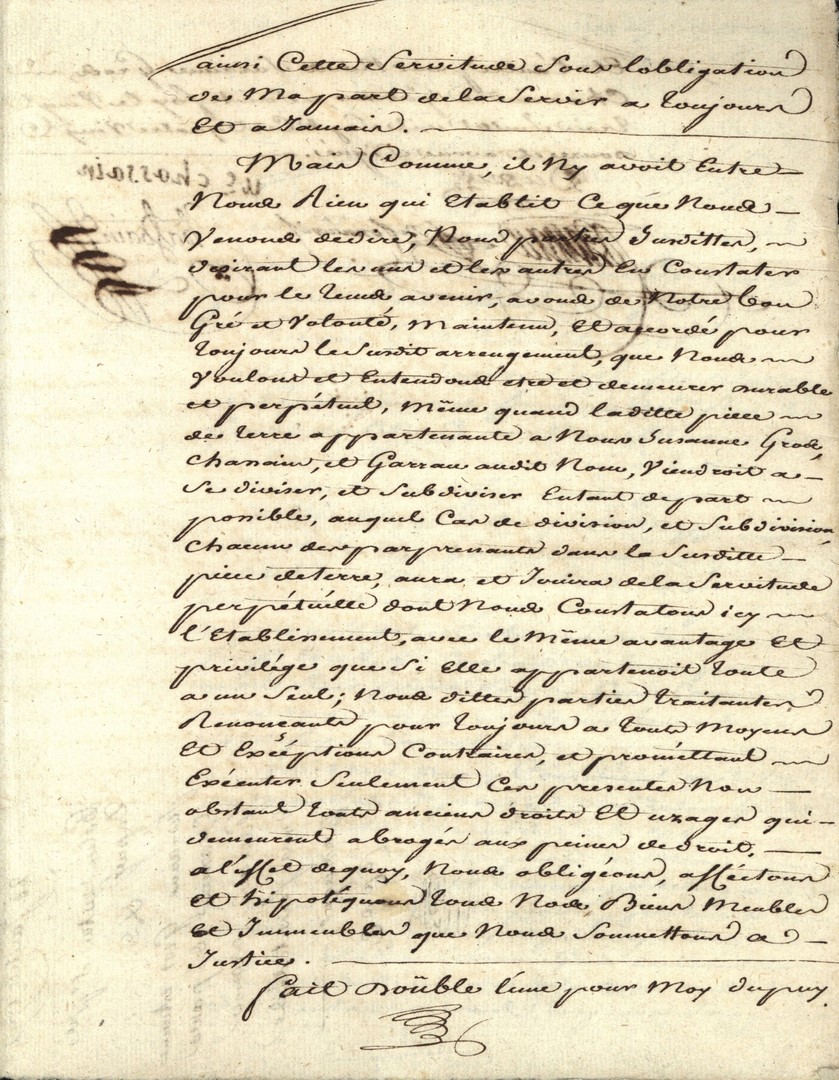 ainsi Cette Servitude Sous lobligation
de Mapart delaServir a toujours
Et a Jamais.
Mais Comme, il Ny avoit Entre
Nous Rien qui Etablit Ce que Nous
Venons dedire, Nous parties Susdittes,
desirant les uns et les autres En Constater
pour le tems avenir, avons de Notre bon
Gré et Volonté, Maintenu, Et accordé pour
toujours le Susdit arrengement, que Nous
Voulons et Entendons etre et demeurer durable
et perpétuel, Même quand laditte piece
de terre appartenante a Nous Susanne Gros,
chassain, et Garrau audit Nom, Viendroit a
Se diviser, et Subdiviser Entant depart
possible, auquel Cas de division, et Subdivision
Chacun des parprenants dans la Susditte
piece deterre, aura et Jouira delaServitude
perpétuëlle dont Nous Constatons icy
l'Etablissement, avec le Même avantage Et
privilége que Si Elle appartenoit toute
a un Seul; Nous dittes parties traitantes
Renonçants pour toujours a touts Moyens
Et Exçéptions Contraires, et prométtant
Exécuter Seulement Ces presentes Non
obstant touts anciens droits Et uzages qui
demeurent abrogés aux peines dedroit,
a l'éffet dequoy, Nous obligéons, afféctons
et hipotéquons tous Nos, Biens Meubles
et Immeubles que Nous Soumettons a
Justice.
fait doüble l'une pour Moy dupuy
chassain